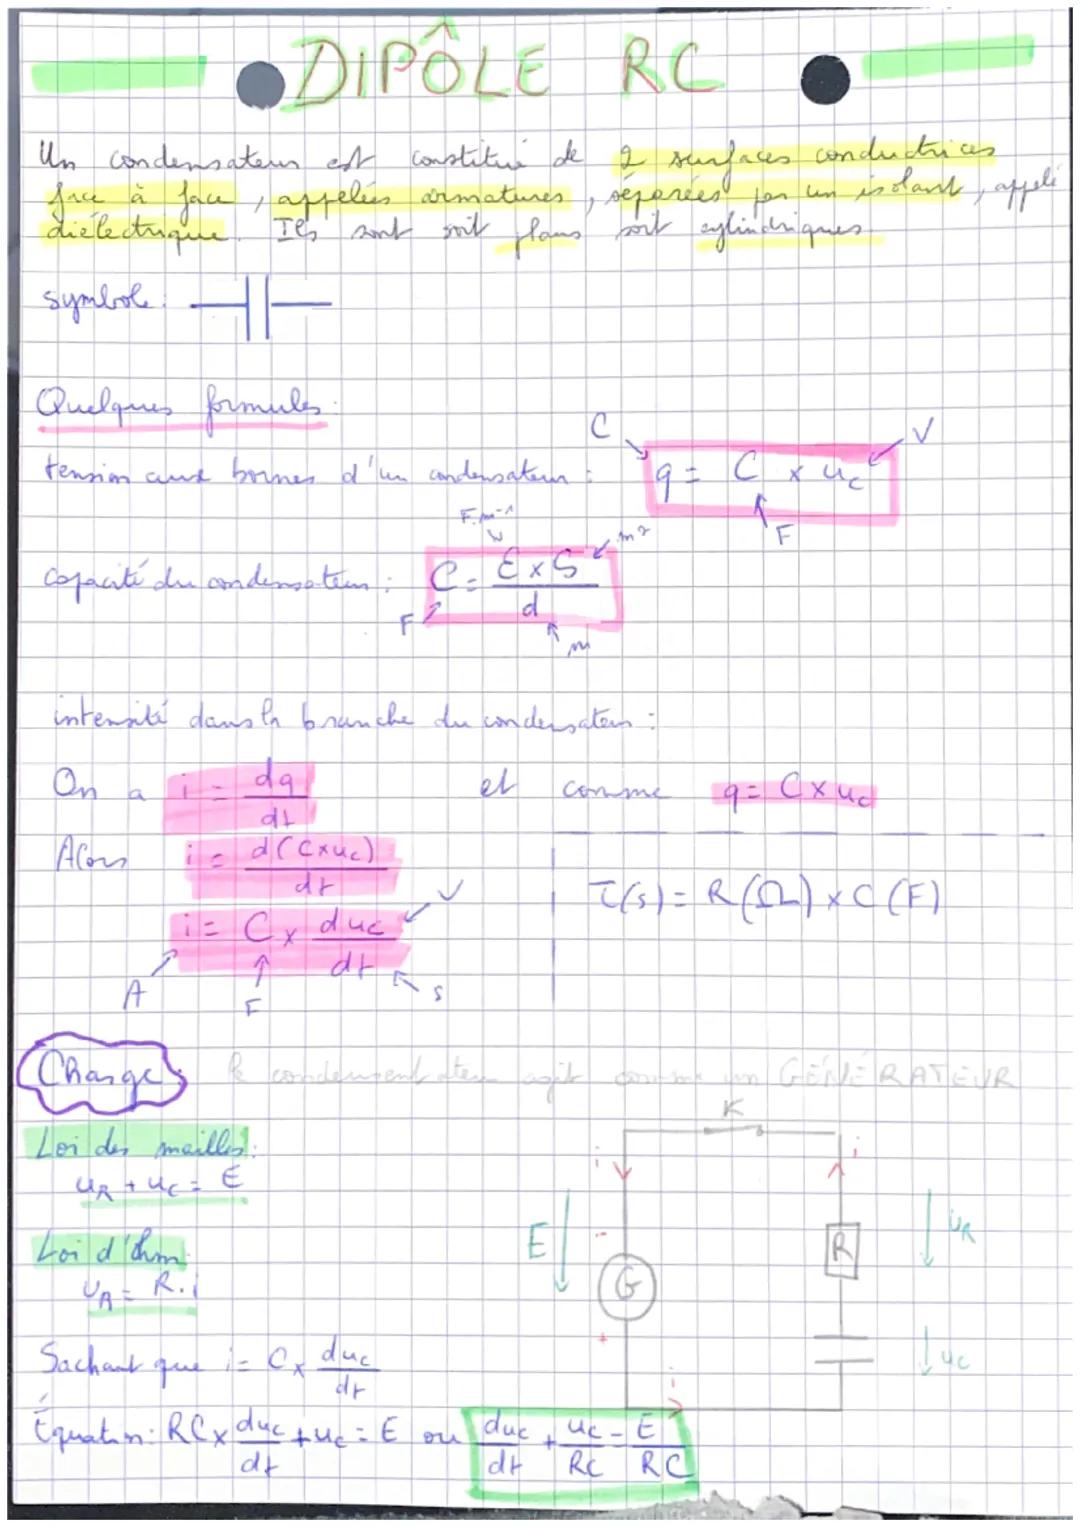 DIPÔLE RC
Un condensateur est constitué de 2 surfaces conductrices
face à face, appelées armatures, séparées par un isolant, appelé
diélectrique. Ils sont soit plans soit cylindriques
symbole:
Quelques formules:
tension aux bornes d'un condensateur : q = C × uc
C
V
F
capacité du condensateur : C = ε × S / d
F.m⁻¹
m²
F
m
intensité dans la branche du condensateur :
On a i = dq/dt et comme q = C × uc
Alors i = d(C×uc)/dt
i = C × duc/dt
V
A
F
s
τ(s) = R(Ω) × C (F)
Charge: le condensentateur agit comme un GÉNÉRATEUR
Loi des mailles:
uR + uc = E
Loi d'ohm:
UR = R.i
Sachant que i = C × duc/dt
Équation: RC × duc/dt + uc = E ou duc/dt + uc/RC = E/RC
K
i
i
E
-
G
+
R
uR
uc
i